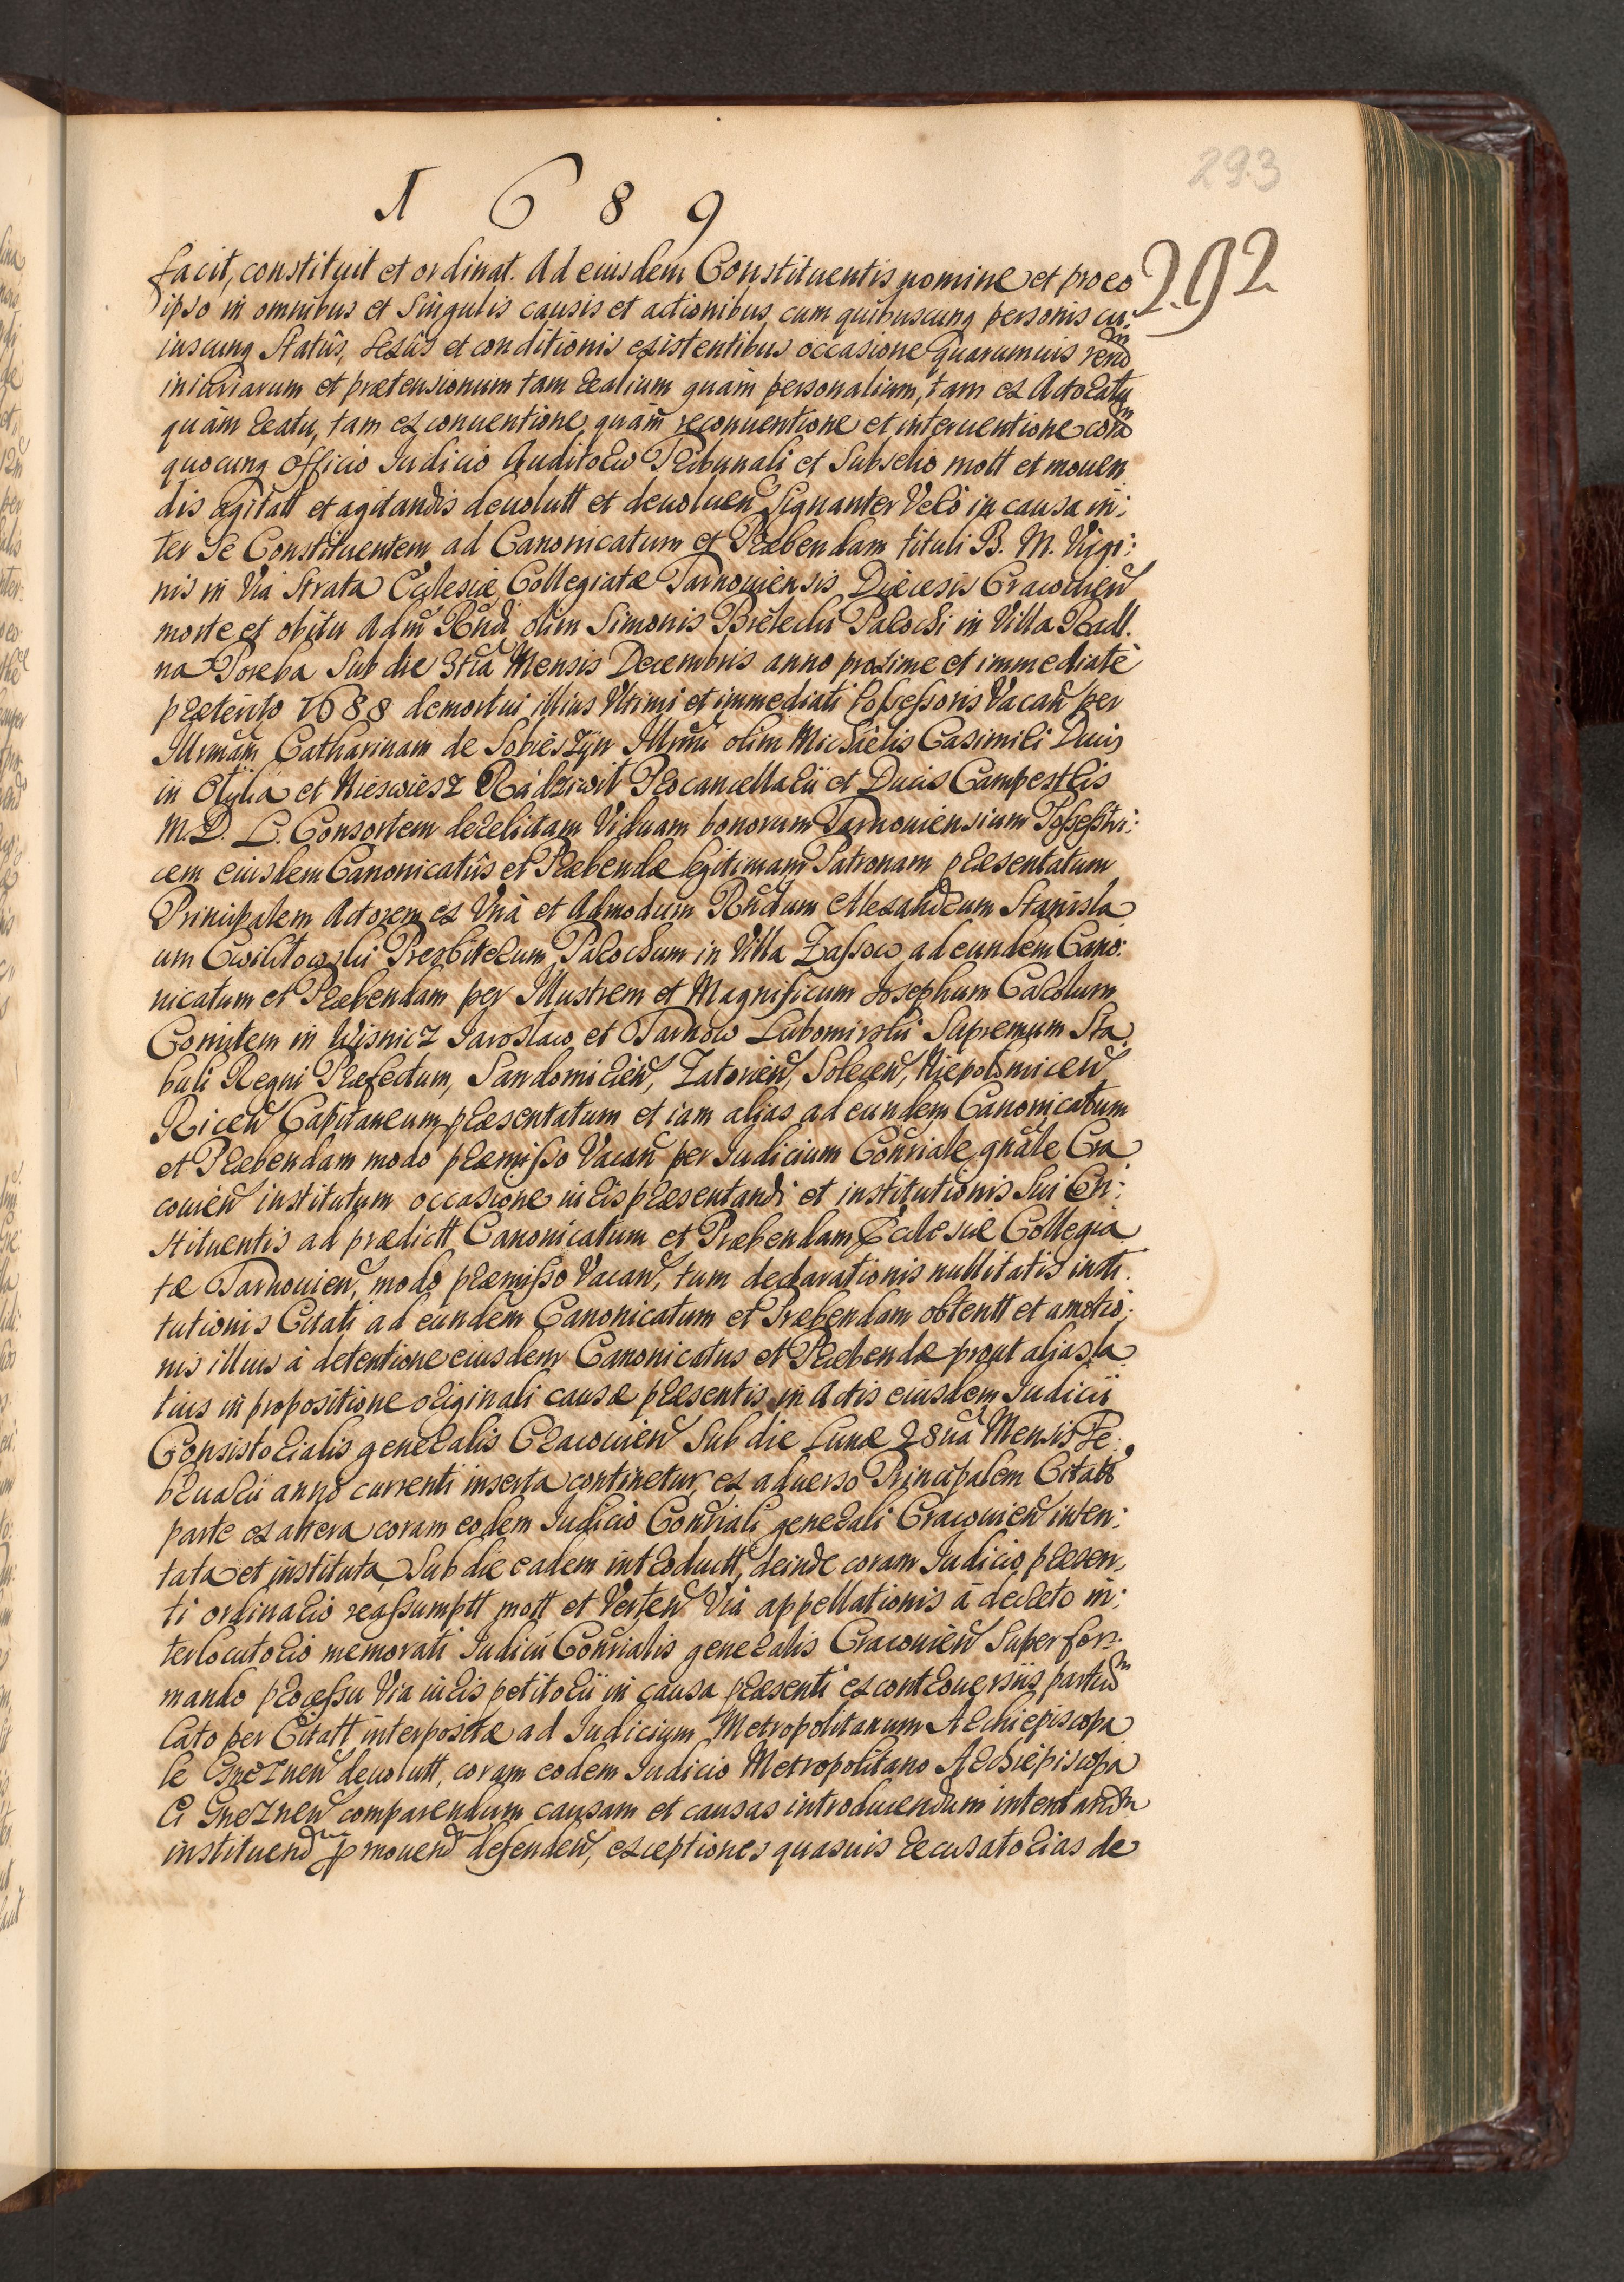 293
1 6 8 9
292
facit, constituit et ordinat. Ad eiusdem Constituentis nomine et pro eo
ipso in omnibus et singulis causis et actionibus cum quibuscunq personis cu:
iuscunq Statûs, sexûs et conditionis existentibus occasione quarumuis rerũ
iniuriarum et prætensionum tam realium quàm personalium, tam ex Actoratu
quàm reatu, tam ex conuentione quàm reconuentione et interuentione corã
quocunq Officio Iudicio Auditorio Tribunali et Subselio mott et mouen
dis agitatt et agitandis deuolutt et deuoluen Signanter Verò in causa in:
ter Se Constituentem ad Canonicatum et Præbendam tituli B. M. Virgi:
nis in Via Strata Ecclesiæ Collegiatæ Tarnouiensis Diœcesis Cracouien
morte et obitu Adm Rndi olim Simonis Parochi in Villa Radl.
na Poreba Sub die 3tia Mensis Decembris anno proxime et immediatè
præterito 1688 demortui illius Vltimi et immediati Possessoris Vacan per
Illrmam Catharinam de Sobieszyn Illrmi olim Michaëlis Casimiri Ducis
in Olyka et Nieswiesz Radziwil Procancellarii et Ducis Campestris
M. D. L. Consortem derelictam Viduam bonorum Tarnouiensium Possestri:
cem eiusdem Canonicatûs et Præbendæ legitimam Patronam præsentatum
Principalem Actorem ex Vnà et Admodum Rndum Alexandrum Stanisla
um Presbiterum Parochum in Villa Zassow ad eundem Cano:
nicatum et Præbendam per Illustrem et Magnificum Josephum Carolum
Comitem in Wisnicz Jaroslaw et Tarnow Lubomirski Supremum Sta
buli Regni Præfectum, Sandomirien, Zatorien, Solecen, Niepolomicen
Ricen Capitaneum præsentatum et iam alias ad eundem Canonicatum
et Præbendam modo præmisso Vacan per Iudicium Conriale gnale Cra
couien institutum occasione iuris præsentandi et institutionis Sui Con:
stituentis ad prædictt Canonicatum et Præbendam Ecclesiæ Collegia
tæ Tarnouien, modo præmisso Vacan, tum declarationis nullitatis insti
tutionis Citati ad eundem Canonicatum et Præbendam obtentt et amotio:
nis illius à detentione eiusdem Canonicatus et Præbendæ prout alias la
tius in propositione originali causæ præsentis in Actis eiusdem Iudicii
Consistorialis generalis Cracouien Sub die Lunæ 28ua Mensis Fe:
bruarii anno currenti inserta continetur, ex aduerso Principalem Citatt
parte ex altera coram eodem Iudicio Conriali generali Cracouien inten:
tata et instituta Sub die eadem introductt, deinde coram Iudicio præsen,
ti ordinario reassumptt mott et Verten Via appellationis à decreto in:
terlocutorio memorati Iudicii Conrialis generalis Cracouien Super for:
mando processu Via iuris petitorii in causa præsenti ex controuersiis partiũ
lato per Citatt interpositæ ad Iudicium Metropolitanum Archiepiscopa
le Gneznen deuolutt, coram eodem Iudicio Metropolitano Archiepiscopa
li Gneznen comparendum causam et causas introducendum intentandm
instituendm mouendm defenden, exceptiones quasuis recusatorias de